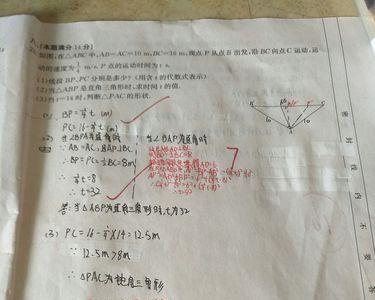 (本题满分14分)
如图,在△ABC中,AB=AC=10 m,BC=16 m,现点P从点B出发,沿BC向点C运动,运
动的速度为¼ m/s,P点的运动时间为t s.
(1)线段BP,PC分别是多少?(用含t的代数式表示)
(2)当△ABP是直角三角形时,求时间t的值.
(3)当t=14时,判断△PAC的形状.
BP=¼t (m)
PC=16-¼t (m)
(2) 当∠BPA为直角时 当∠BAP为直角时
∵AB=AC,且AP⊥BC
∴BP=PC=½BC=8m
∴¼t=8
∴t=32
答:当△ABP为直角三角形时,t为32
(3) PC=16-¼×14=12.5m
∵12.5m>8m
∴△PAC为钝角三角形